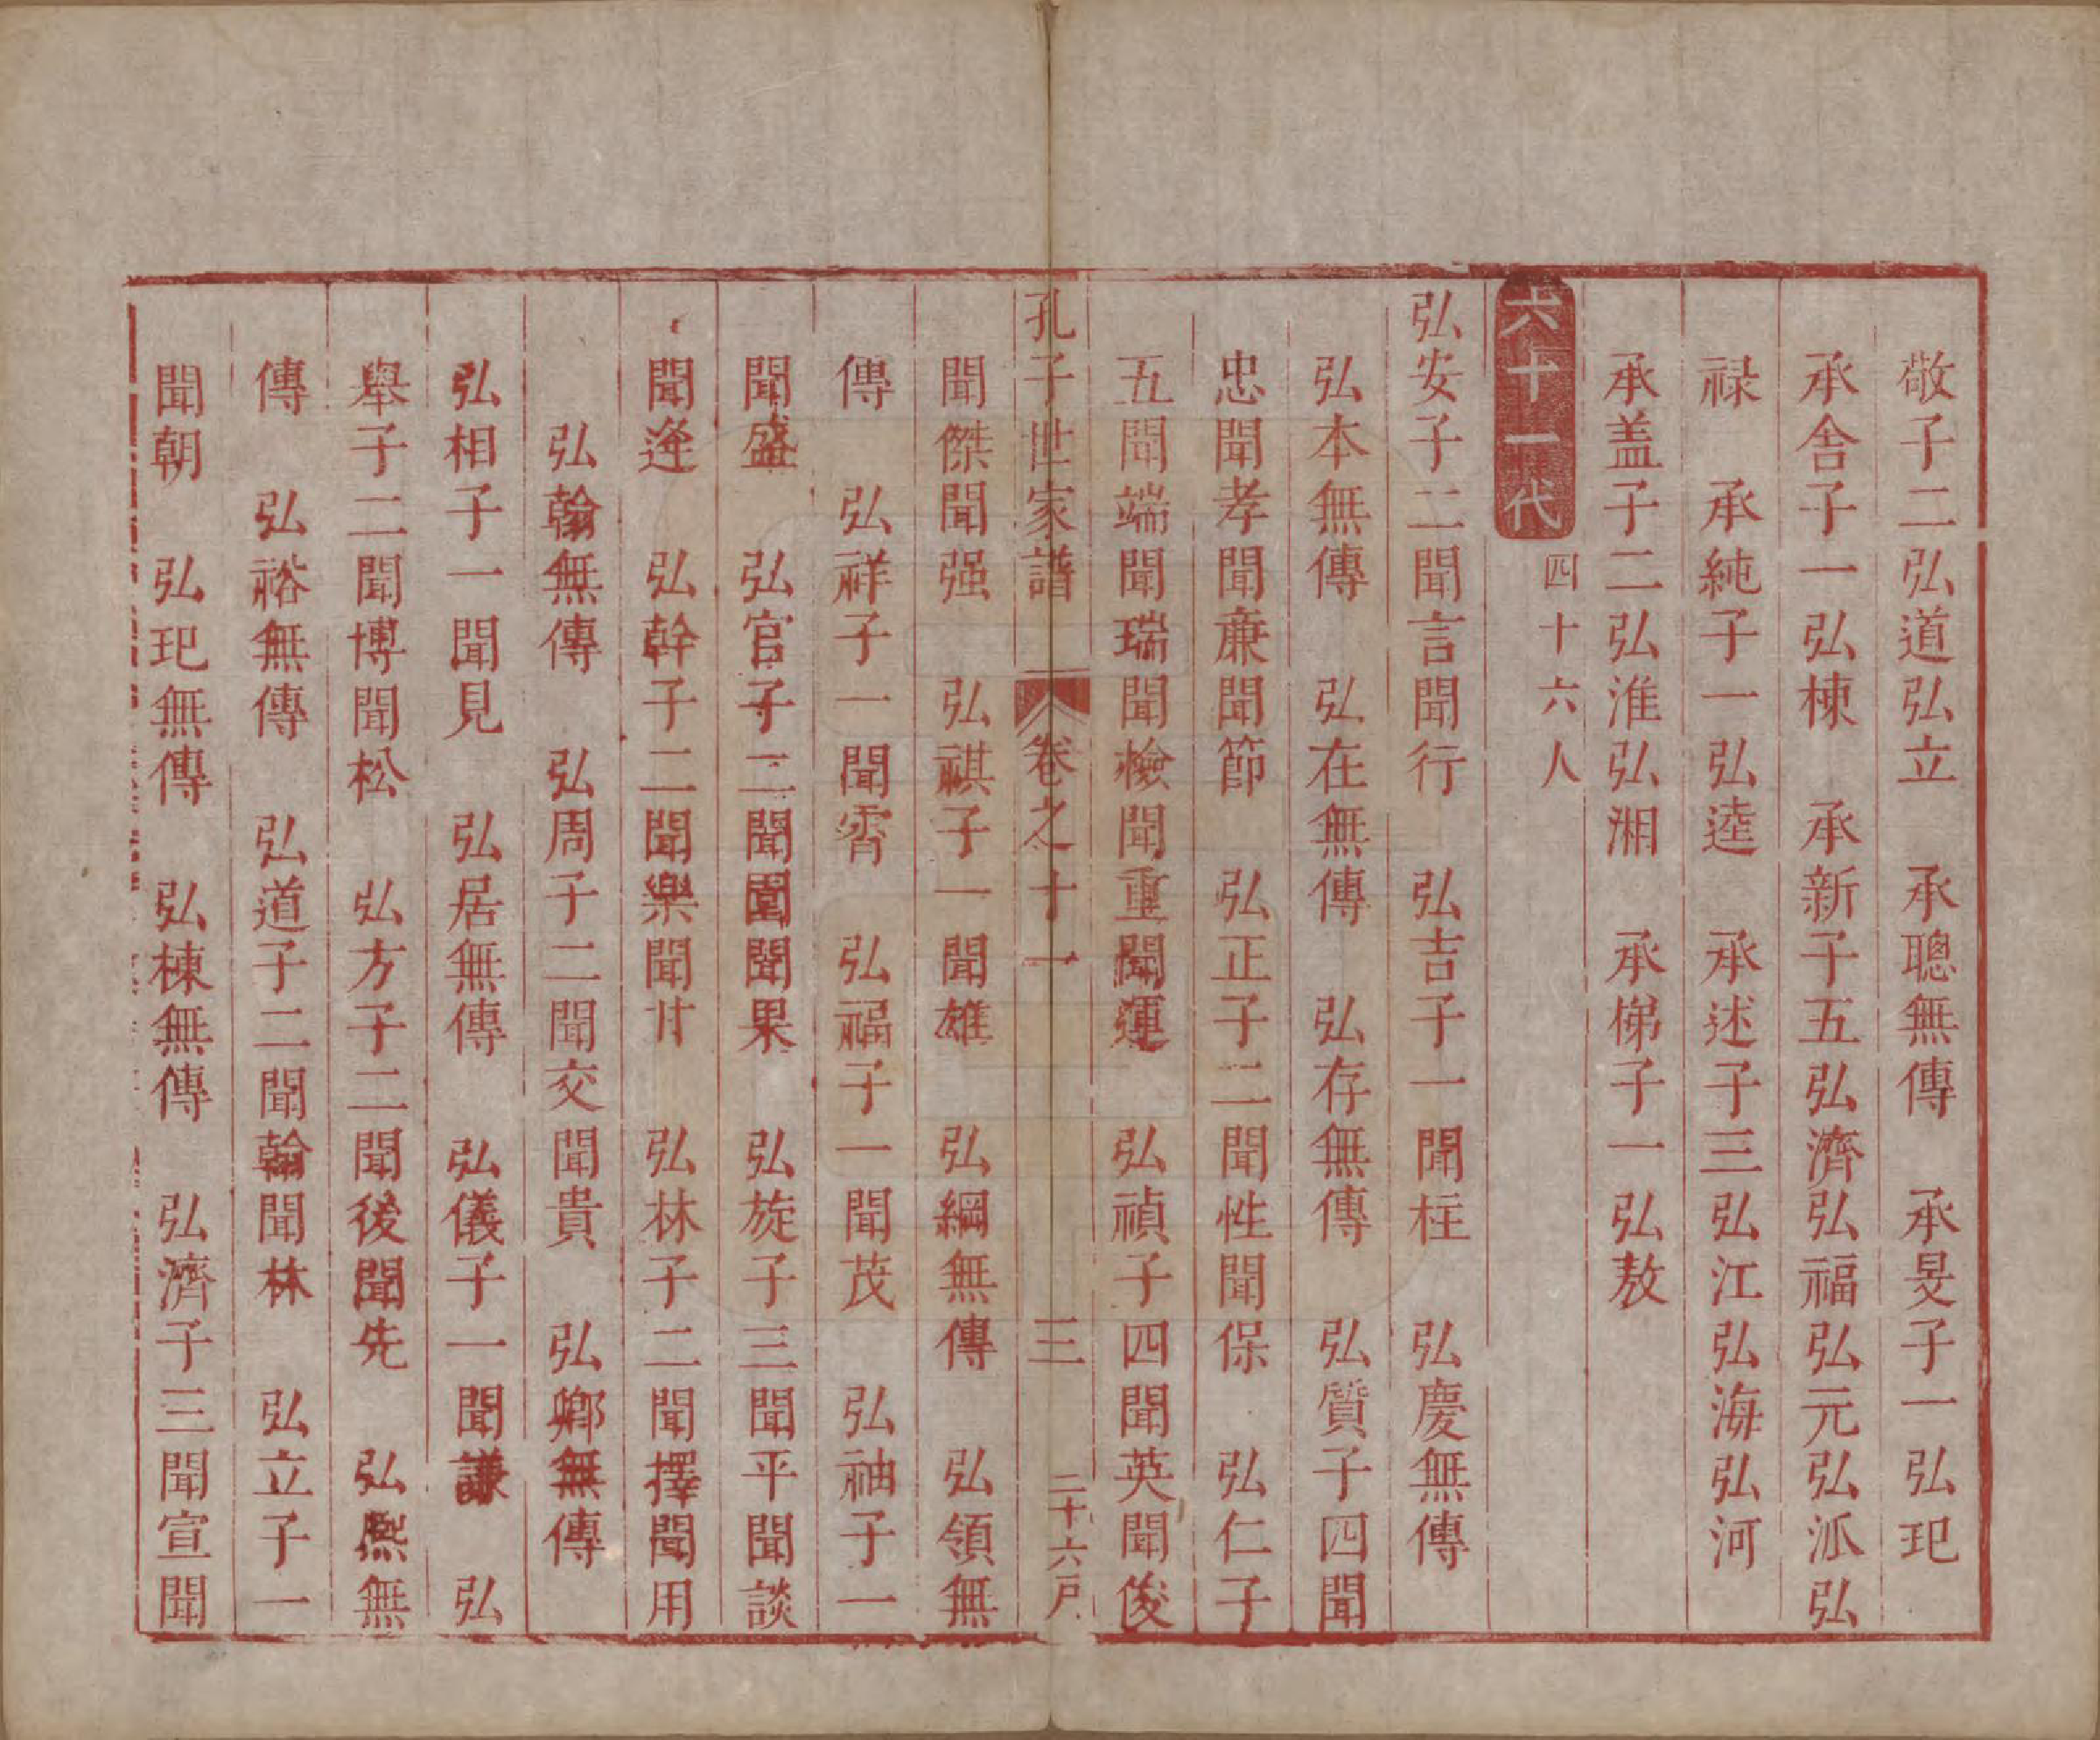 敬子二弘道弘立　承聰無傳　承旻子一弘玘
承舍子一弘棟　承新子五弘濟弘福弘元弘派弘
禄　承純子一弘逵　承述子三弘江弘海弘河
承盖子二弘淮弘湘　承梯子一弘敖
六十一代　四十六人
弘安子二聞言聞行　弘吉子一聞柱　弘慶無傳
弘本無傳　弘在無傳　弘存無傳　弘質子四聞
忠聞孝聞廉聞節　弘正子二聞性聞保　弘仁子
五聞端聞瑞聞檢聞重聞運　弘禎子四聞英聞俊
孔子世家譜　卷之十一　三　二十六戶
聞傑聞强　弘祺子一聞雄　弘綱無傳　弘領無
傳　弘祥子一聞霄　弘福子一聞茂　弘䄂子一
聞盛　弘官子二聞圍聞果　弘旋子三聞平聞談
聞逢　弘幹子二聞樂聞甘　弘林子二聞擇聞用
弘翰無傳　弘周子二聞交聞貴　弘鄉無傳
弘相子一聞見　弘居無傳　弘儀子一聞謙　弘
舉子二聞博聞松　弘方子二聞後聞先　弘熙無
傳　弘裕無傳　弘道子二聞翰聞林　弘立子一
聞朝　弘玘無傳　弘棟無傳　弘濟子三聞宣聞